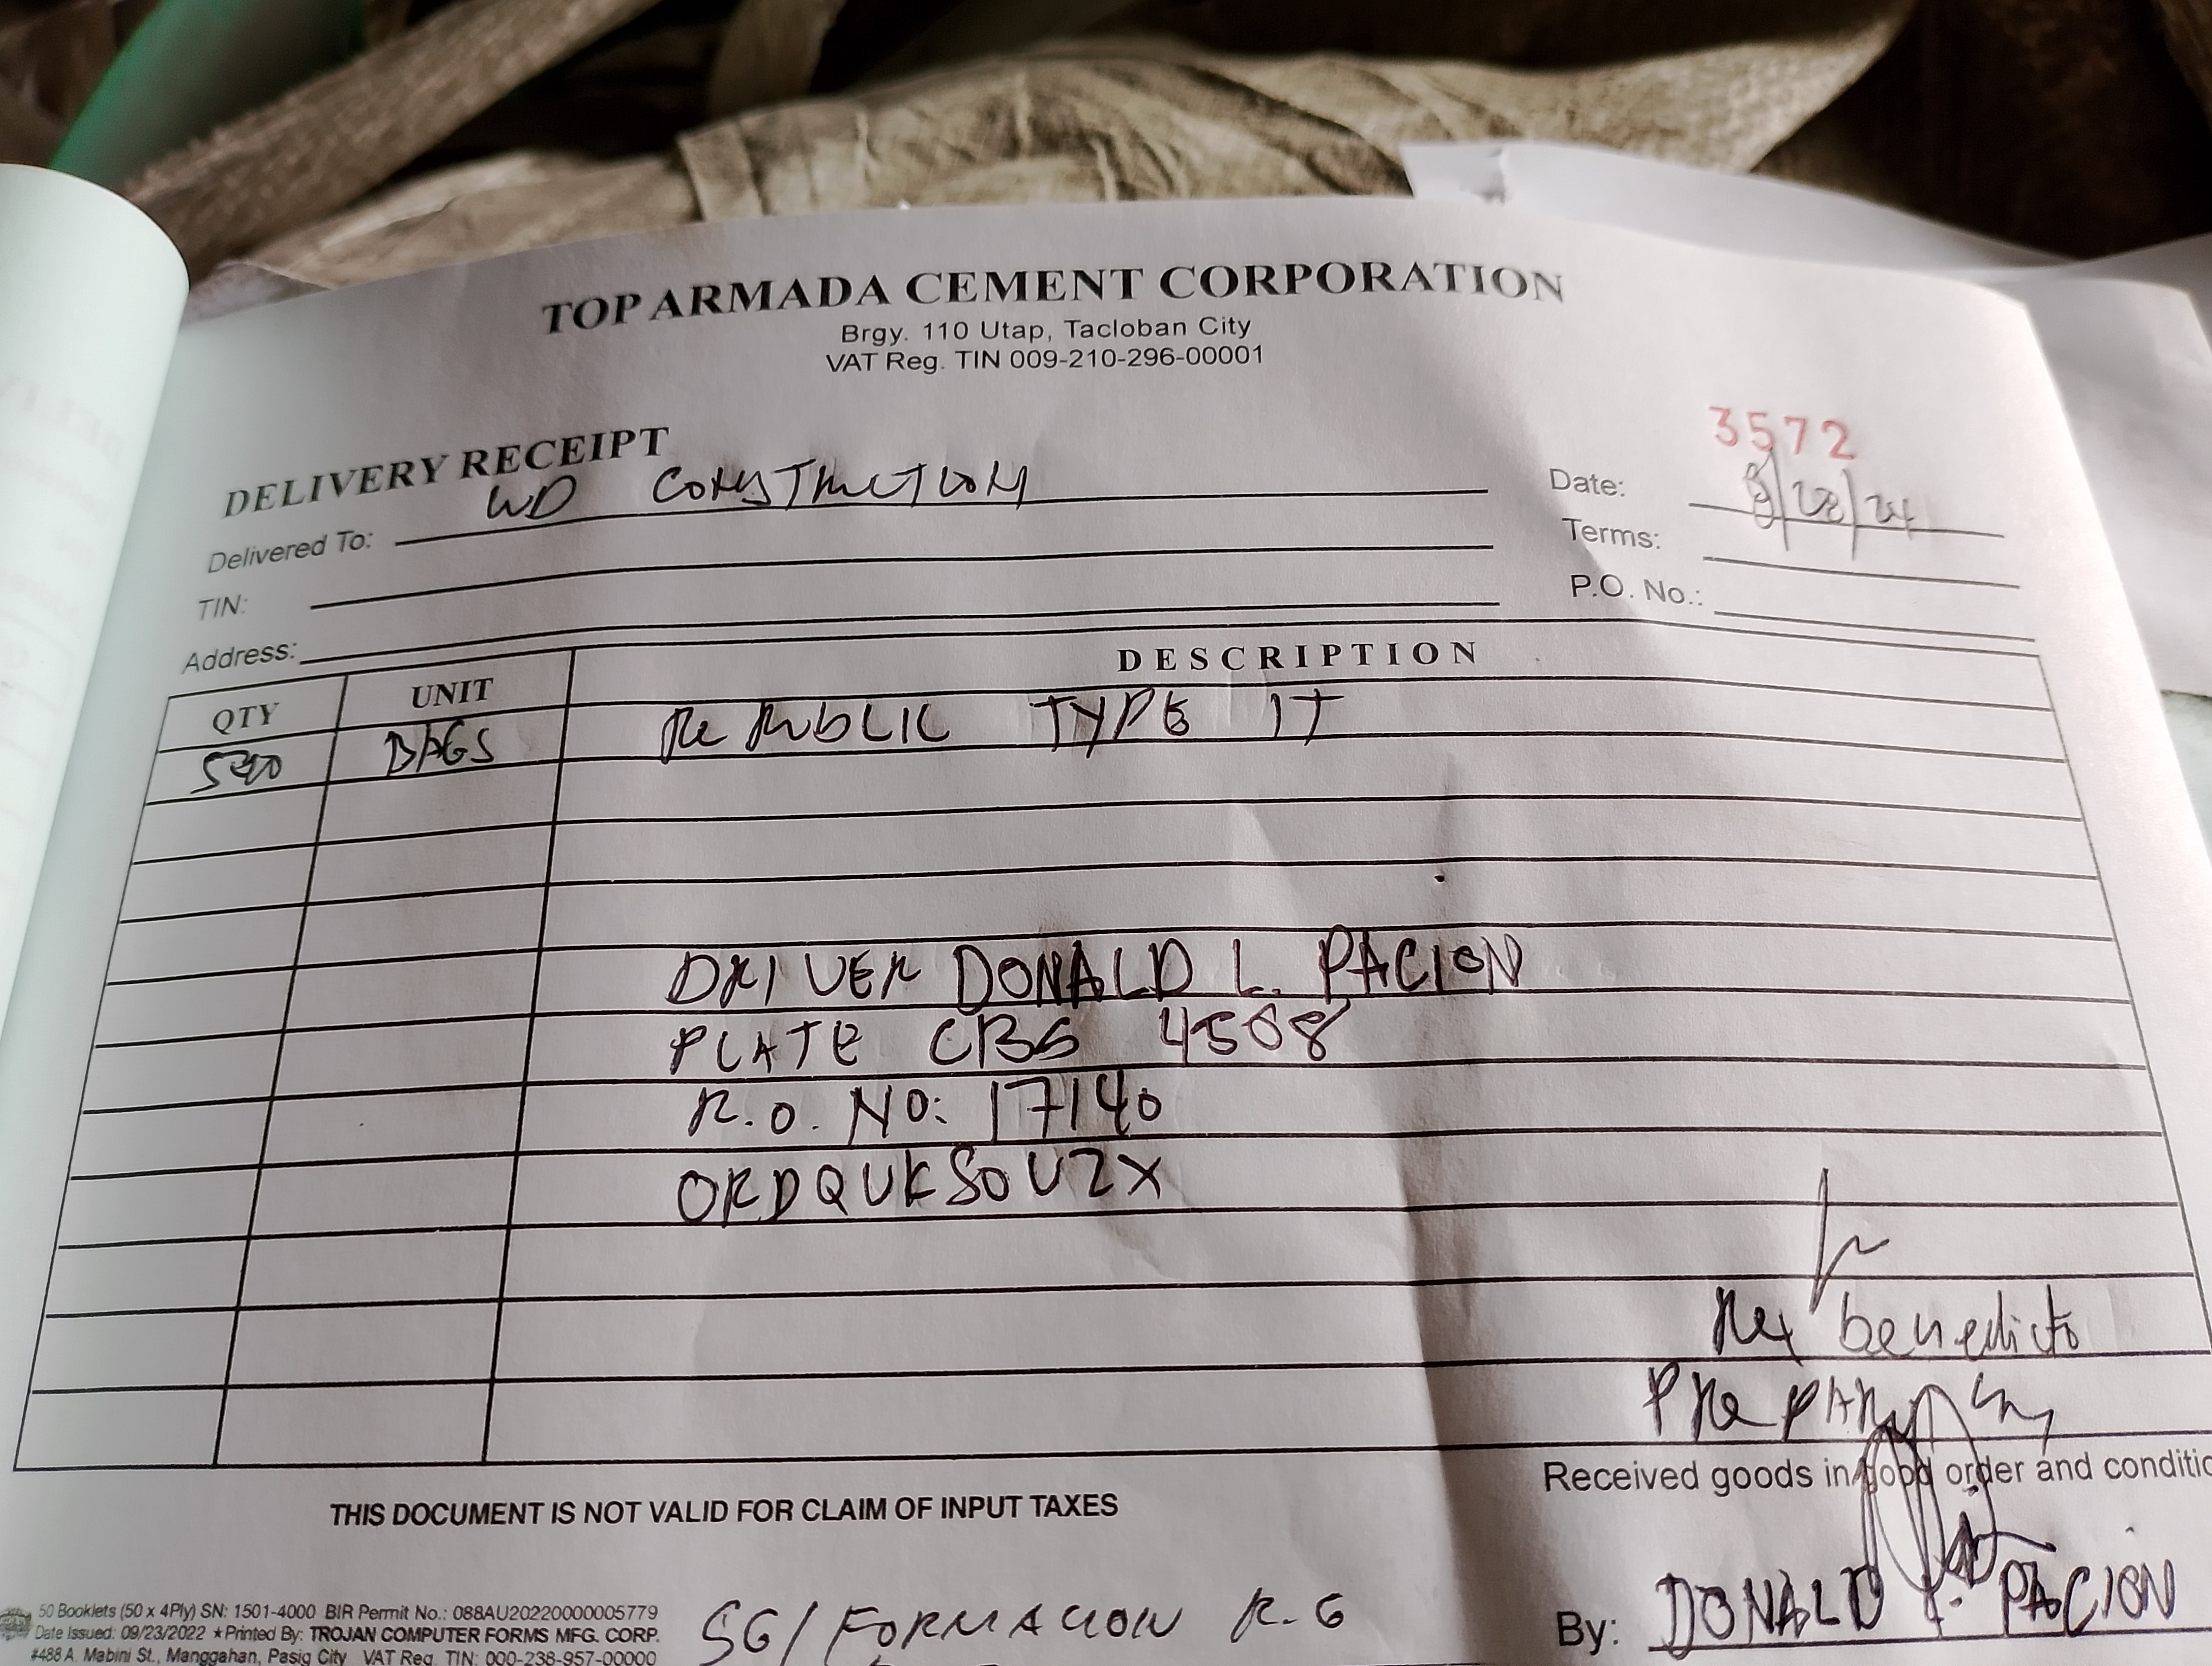 TOP ARMADA CEMENT CORPORATION
Brgy. 110 Utap, Tacloban City
VAT Reg. TIN 009-210-296-00001
3572
DELIVERY RECEIPT
Delivered To: WD CONSTRUCTION
Date: 8/28/24
TIN:
Terms:
Address:
P.O. No.:
QTY UNIT DESCRIPTION
BAGS REPUBLIC TYPE 1T
DRIVER DONALD L. PACION
PLATE CBG 4508
R.O. NO: 17140
ORDQUKSOUZX
Rex benedicto
Received goods in good order and conditio
THIS DOCUMENT IS NOT VALID FOR CLAIM OF INPUT TAXES
By: DONALD L. PACION
50 Booklets (50 x 4Ply) SN: 1501-4000 BIR Permit No.: 088AU20220000005779
Date Issued: 09/23/2022 ★Printed By: TROJAN COMPUTER FORMS MFG. CORP.
#488 A. Mabini St., Manggahan, Pasig City VAT Reg. TIN: 000-238-957-00000
SG/ FORMACION R.G